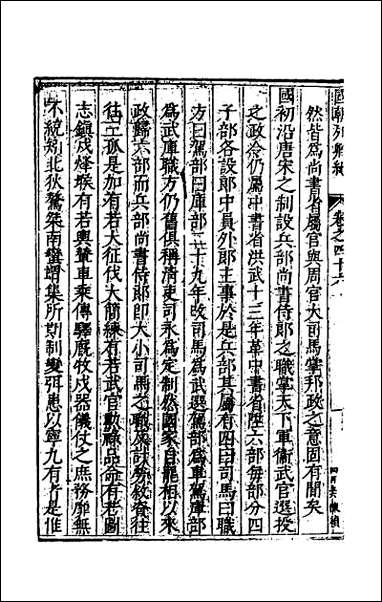 國朝列卿紀
卷之四十六
然皆為尚書省屬官與周官大司馬掌邦政之意固有間矣
國初沿唐宋之制設兵部尚書侍郎之職掌天下軍衛武官選授
之政令仍屬中書省洪武十三年革中書省陞六部每部分四
子部各設郎中員外郎主事於是兵部其屬有四曰司馬曰職
方曰駕部曰庫部二十九年改司馬為武選駕部為車駕庫部
為武庫職方仍舊俱稱清吏司永為定制然國家自罷相以來
政歸六部而兵部尚書侍郎即大小司馬之職
往工孤是加有若大征伐大簡練有若武官勳祿品命有若圖
志鎮戍烽堠有若輿輦車乘傳驛廄牧戎器儀仗之庶務靡無
不統矧北狄驁桀南蠻蝟集所期制變弭患以寧九有